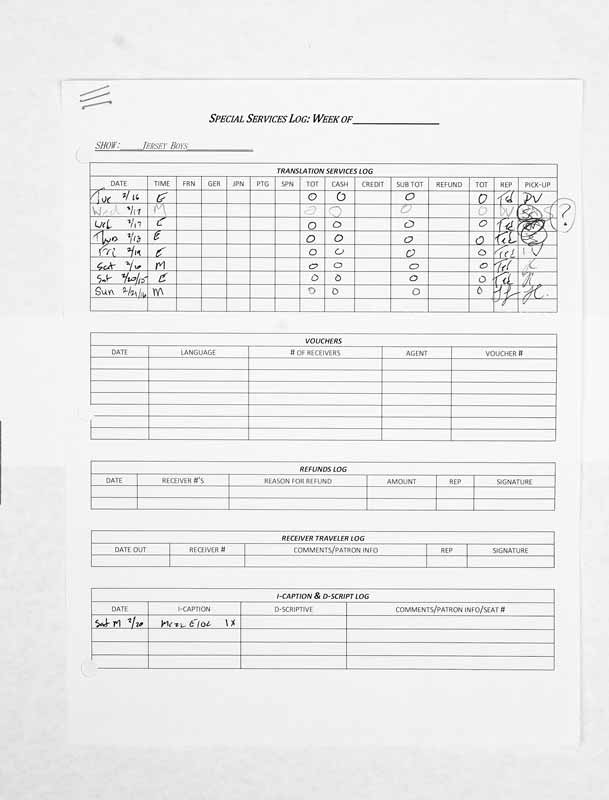 SPECIAL SERVICES LOG: WEEK OF
SHOW: JERSEY BOYS
TRANSLATION SERVICES LOG
DATE TIME FRN GER JPN PTG SPN TOT CASH CREDIT SUB TOT REFUND TOT REP PICK-UP
Tue 2/16 E 0 0 0 0 Tel PV
Wed 2/17 M 0 0 0 0 PV
Wed 2/17 E 0 0 0 0 Tel ?
Thu 2/18 E 0 0 0 0 Tel
Fri 2/19 E 0 0 0 0 Tel
Sat M 0 0 0 0 Tel
Sat 2/20/15 E 0 0 0 0 Tel
Sun 2/21/16 M 0 0 0 0
VOUCHERS
DATE LANGUAGE # OF RECEIVERS AGENT VOUCHER #
REFUNDS LOG
DATE RECEIVER #'S REASON FOR REFUND AMOUNT REP SIGNATURE
RECEIVER TRAVELER LOG
DATE OUT RECEIVER # COMMENTS/PATRON INFO REP SIGNATURE
I-CAPTION & D-SCRIPT LOG
DATE I-CAPTION D-SCRIPTIVE COMMENTS/PATRON INFO/SEAT #
Sat M 2/20 1x